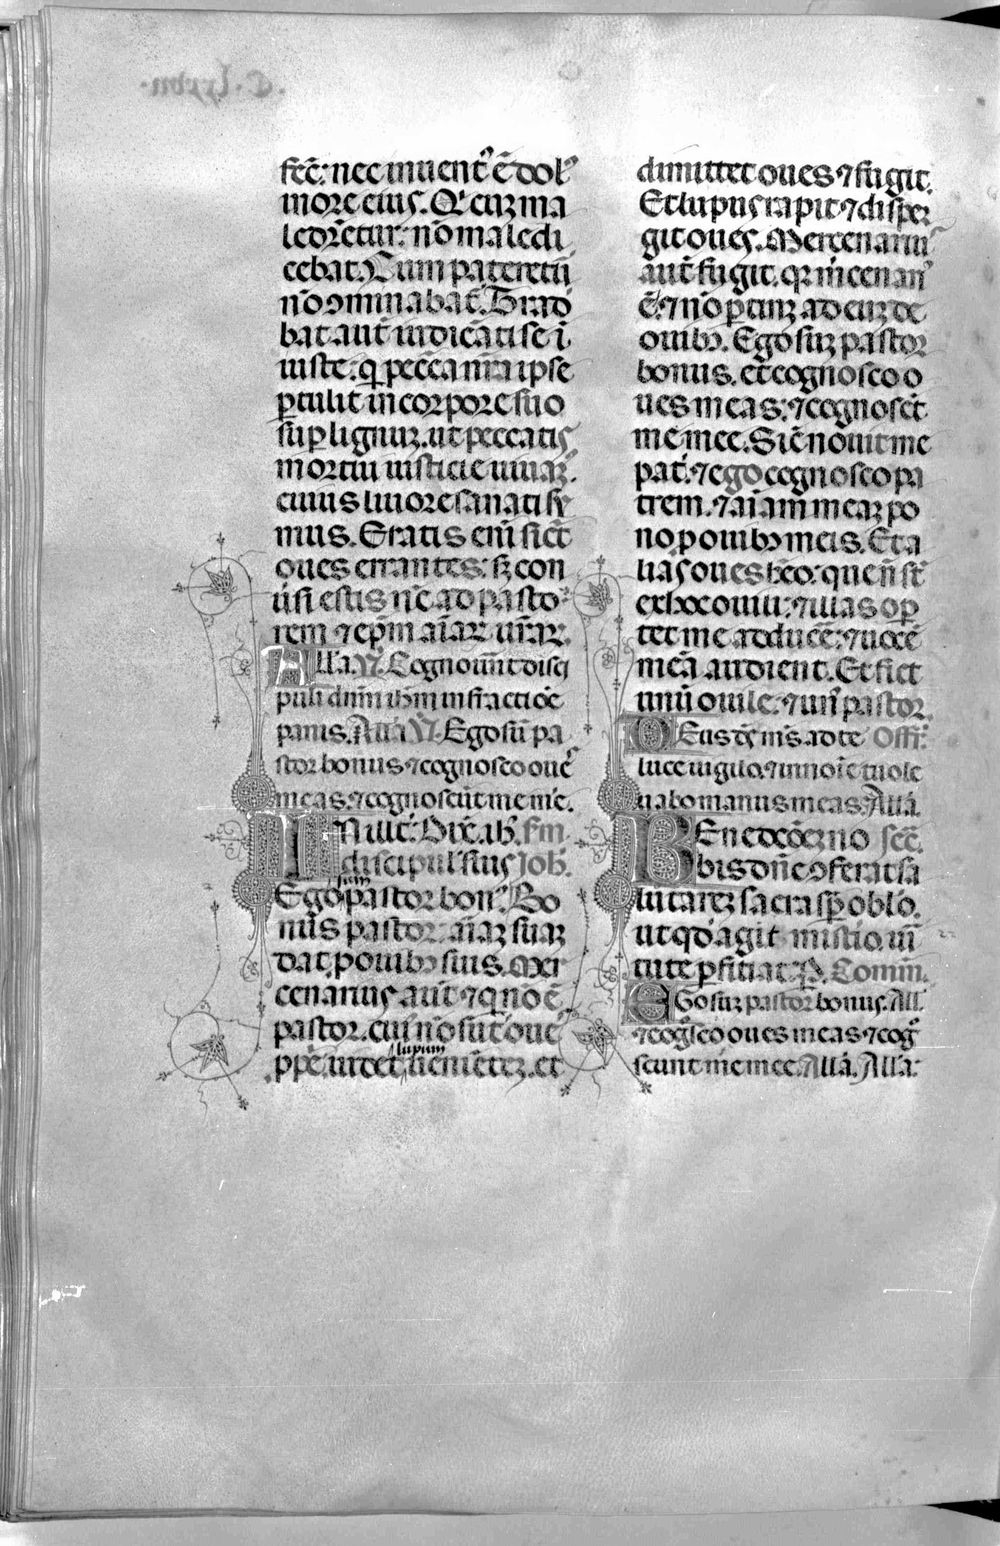 fec̄: nec inuent᷒ ē dol᷒
in ore eius. Qī cuꝫ ma
ledoꝛ̄etur: nō maledi
cebat. Cum pateretᷣ
nō ꝯminabat̄. Trad
bat aut̄ iudicāti se ī
iuste: q̇ peccā nr̄a ipse
ꝑtulit in coꝛpoꝛe suo
suꝑ lignuꝫ. ut peccatis
moꝛtui iusticie uiuaꝫ᷒.
cuius liuoꝛe sanati su
mus. Eratis eni᷒ sicut̄
oues errantes: sꝫ con
ūsi estis nc̄ ad pasto
rem ⁊ ep̄m aīaꝝ ur̄aꝝ.
Alla. ℣. Cognouer̄t disci
puli dnm̄ ih̄m in fractiōe
panis. Alla ℣. Ego sū pa
stoꝛ bonus ⁊ cognosco oue᷒
meas. ⁊ cognoscūt me mē.
IN illo t̄. Dix̄. ih̄. Scd̄m
discipul' suis Joh̄.
Ego sum pastoꝛ bon᷒. Bo
nus pastoꝛ aīaꝫ suaꝫ
dat. p ouibꝫ suis. Mer
cenarius aut̄ ⁊ q nō ē
pastoꝛ. cui᷒ nō sūt oue᷒
ppē. uidet lupum uenietēꝫ. et
dimittet oues ⁊ fugit.
Et lupus rapit ⁊ disper
git oues. Mercenariu᷒
aut̄ fugit. qꝛ m̄cenari᷒
ē. ⁊ nō ꝑtinꝫ ad euꝫ de
ouibꝫ. Ego suꝫ pastoꝛ
bonus. et cognosco o
ues meas: ⁊ cognoscūt
me mee. Sic̄ nouit me
pat̄. ⁊ ego cognosco pa
trem. ⁊ aīam meaꝫ po
no p ouibꝫ meis. Et a
lias oues hēo. que nō sūt
ex hoc ouili: ⁊ illas opoꝛ
tet me adducē̄: ⁊ uocē
meā audient. Et fiet
unū ouile. ⁊ un᷒ pastoꝛ.
DEus ds̄ ms̄. ad te Offr̄.
luce uigilo. ⁊ in noīe tuo le
uabo manus meas: Allā.
BEnedcōeꝫ no Sec̄.
bis dnē ꝯferat sa
lutareꝫ sacra sꝑ oblo.
ut qd̄ agit misterio. uir̄
tute ꝑficiat. P̱. Comm̄.
EGo suꝫ pastoꝛ bonus. All.
⁊ cogsco oues meas ⁊ cog᷒
scunt me mee. Allā. Alla: